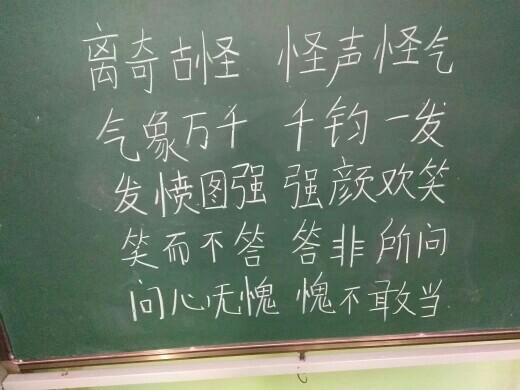 离奇古怪 怪声怪气
气象万千 千钧一发
发愤图强 强颜欢笑
笑而不答 答非所问
问心无愧 愧不敢当